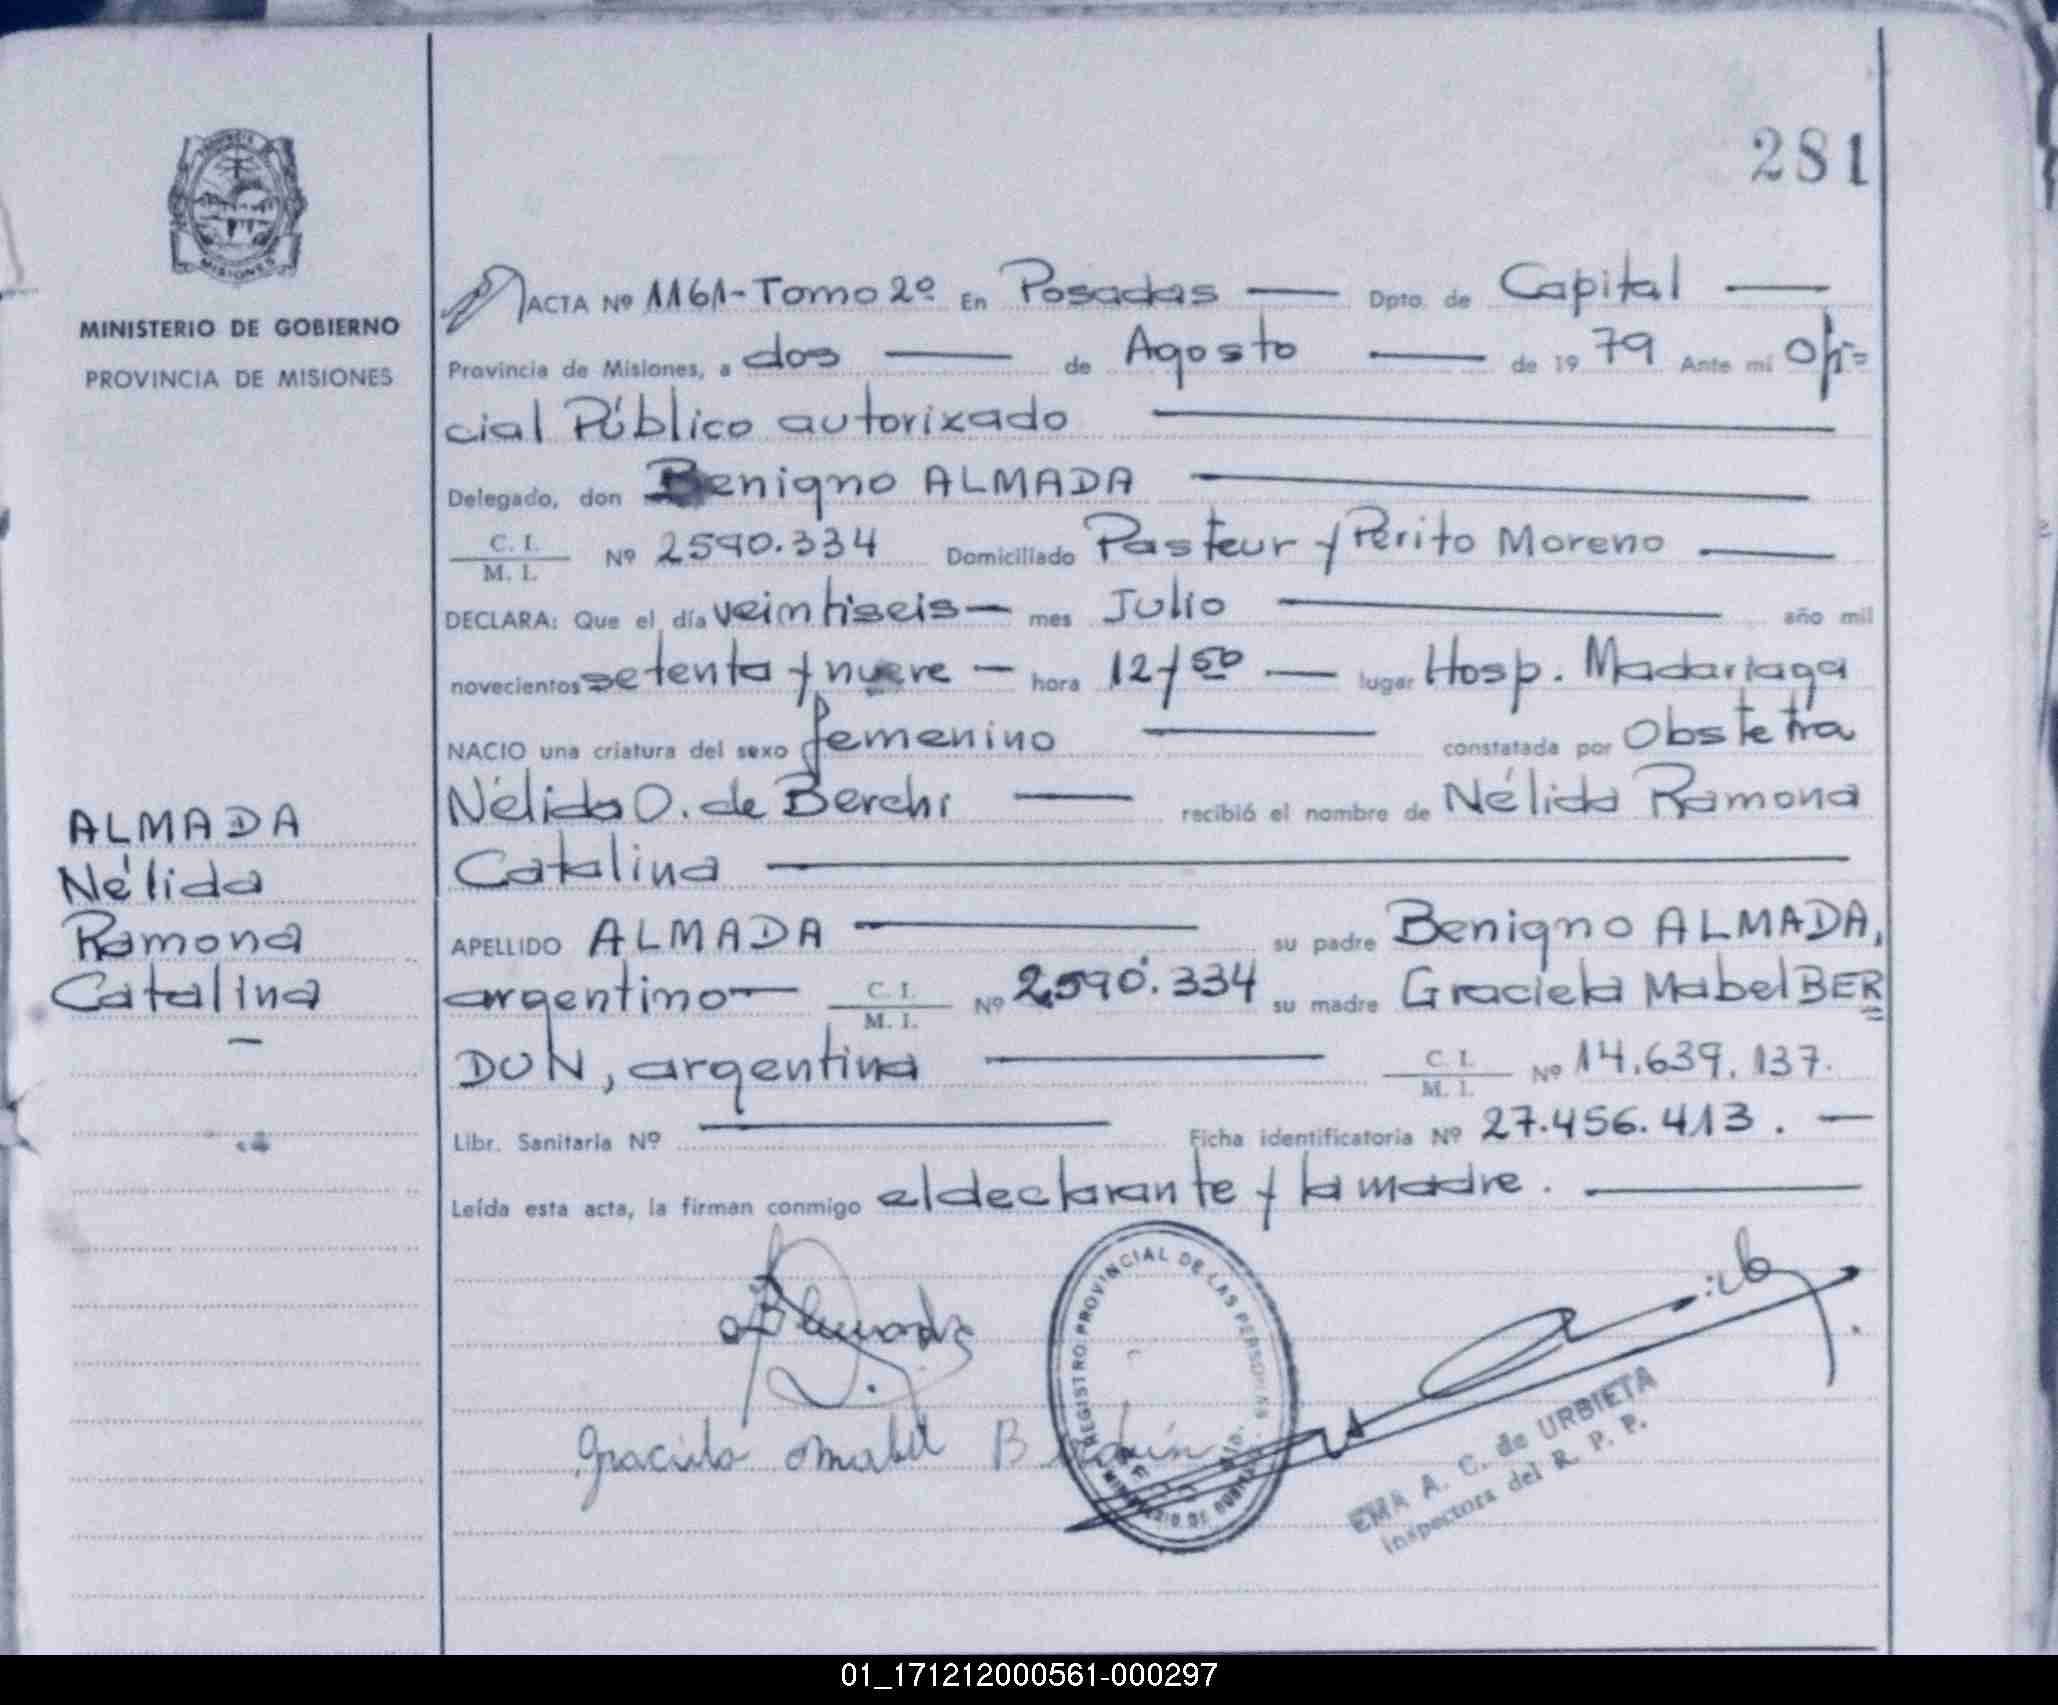 281
PROVINCIA
MISIONES
MINISTERIO DE GOBIERNO
PROVINCIA DE MISIONES
ALMADA
Nélida
Ramona
Catalina
ACTA Nº 1161-Tomo 2º En Posadas Dpto. de Capital
Provincia de Misiones, a dos de Agosto de 1979 Ante mí Ofi=
cial Público autorizado
Delegado, don Benigno ALMADA
C. I. / M. I. Nº 2590.334 Domiciliado Pasteur y Perito Moreno
DECLARA: Que el día veintiseis mes Julio año mil
novecientos setenta y nueve hora 12 y 50 lugar Hosp. Madariaga
NACIO una criatura del sexo femenino constatada por Obstetra
Nélida O. de Berchi recibió el nombre de Nélida Ramona
Catalina
APELLIDO ALMADA su padre Benigno ALMADA,
argentino C. I. / M. I. Nº 2.590.334 su madre Graciela Mabel BER
DUN, argentina C. I. / M. I. Nº 14.639.137.
Libr. Sanitaria Nº Ficha identificatoria Nº 27.456.413.
Leída esta acta, la firman conmigo el declarante y la madre.
REGISTRO PROVINCIAL DE LAS PERSONAS
Graciela Mabel Berdún
EMA A. C. de URBIETA
Inspectora del R. P. P.
01_171212000561-000297